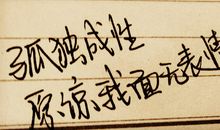 孤独成性
原谅我面无表情